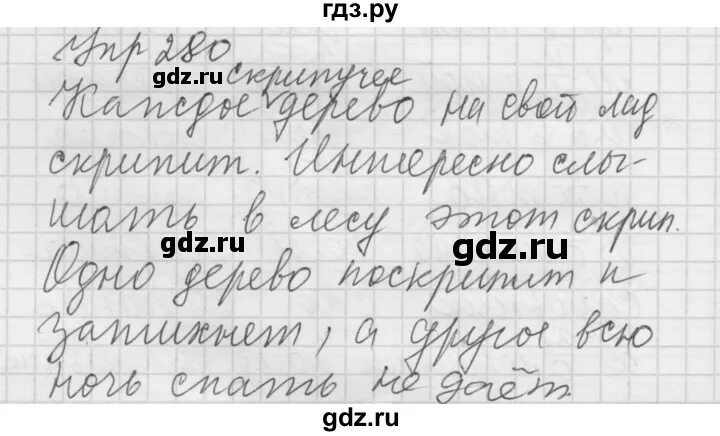 гдз.ру
Упр 280
gdz.ru скрипучее gdz.ru
Каждое дерево на свой лад
скрипит. Интересно слы-
шать в лесу этот скрип.
gdz.ru gdz.ru
Одно дерево поскрипит и
затихнет, а другое всю
ночь спать не даёт.
gdz.ru